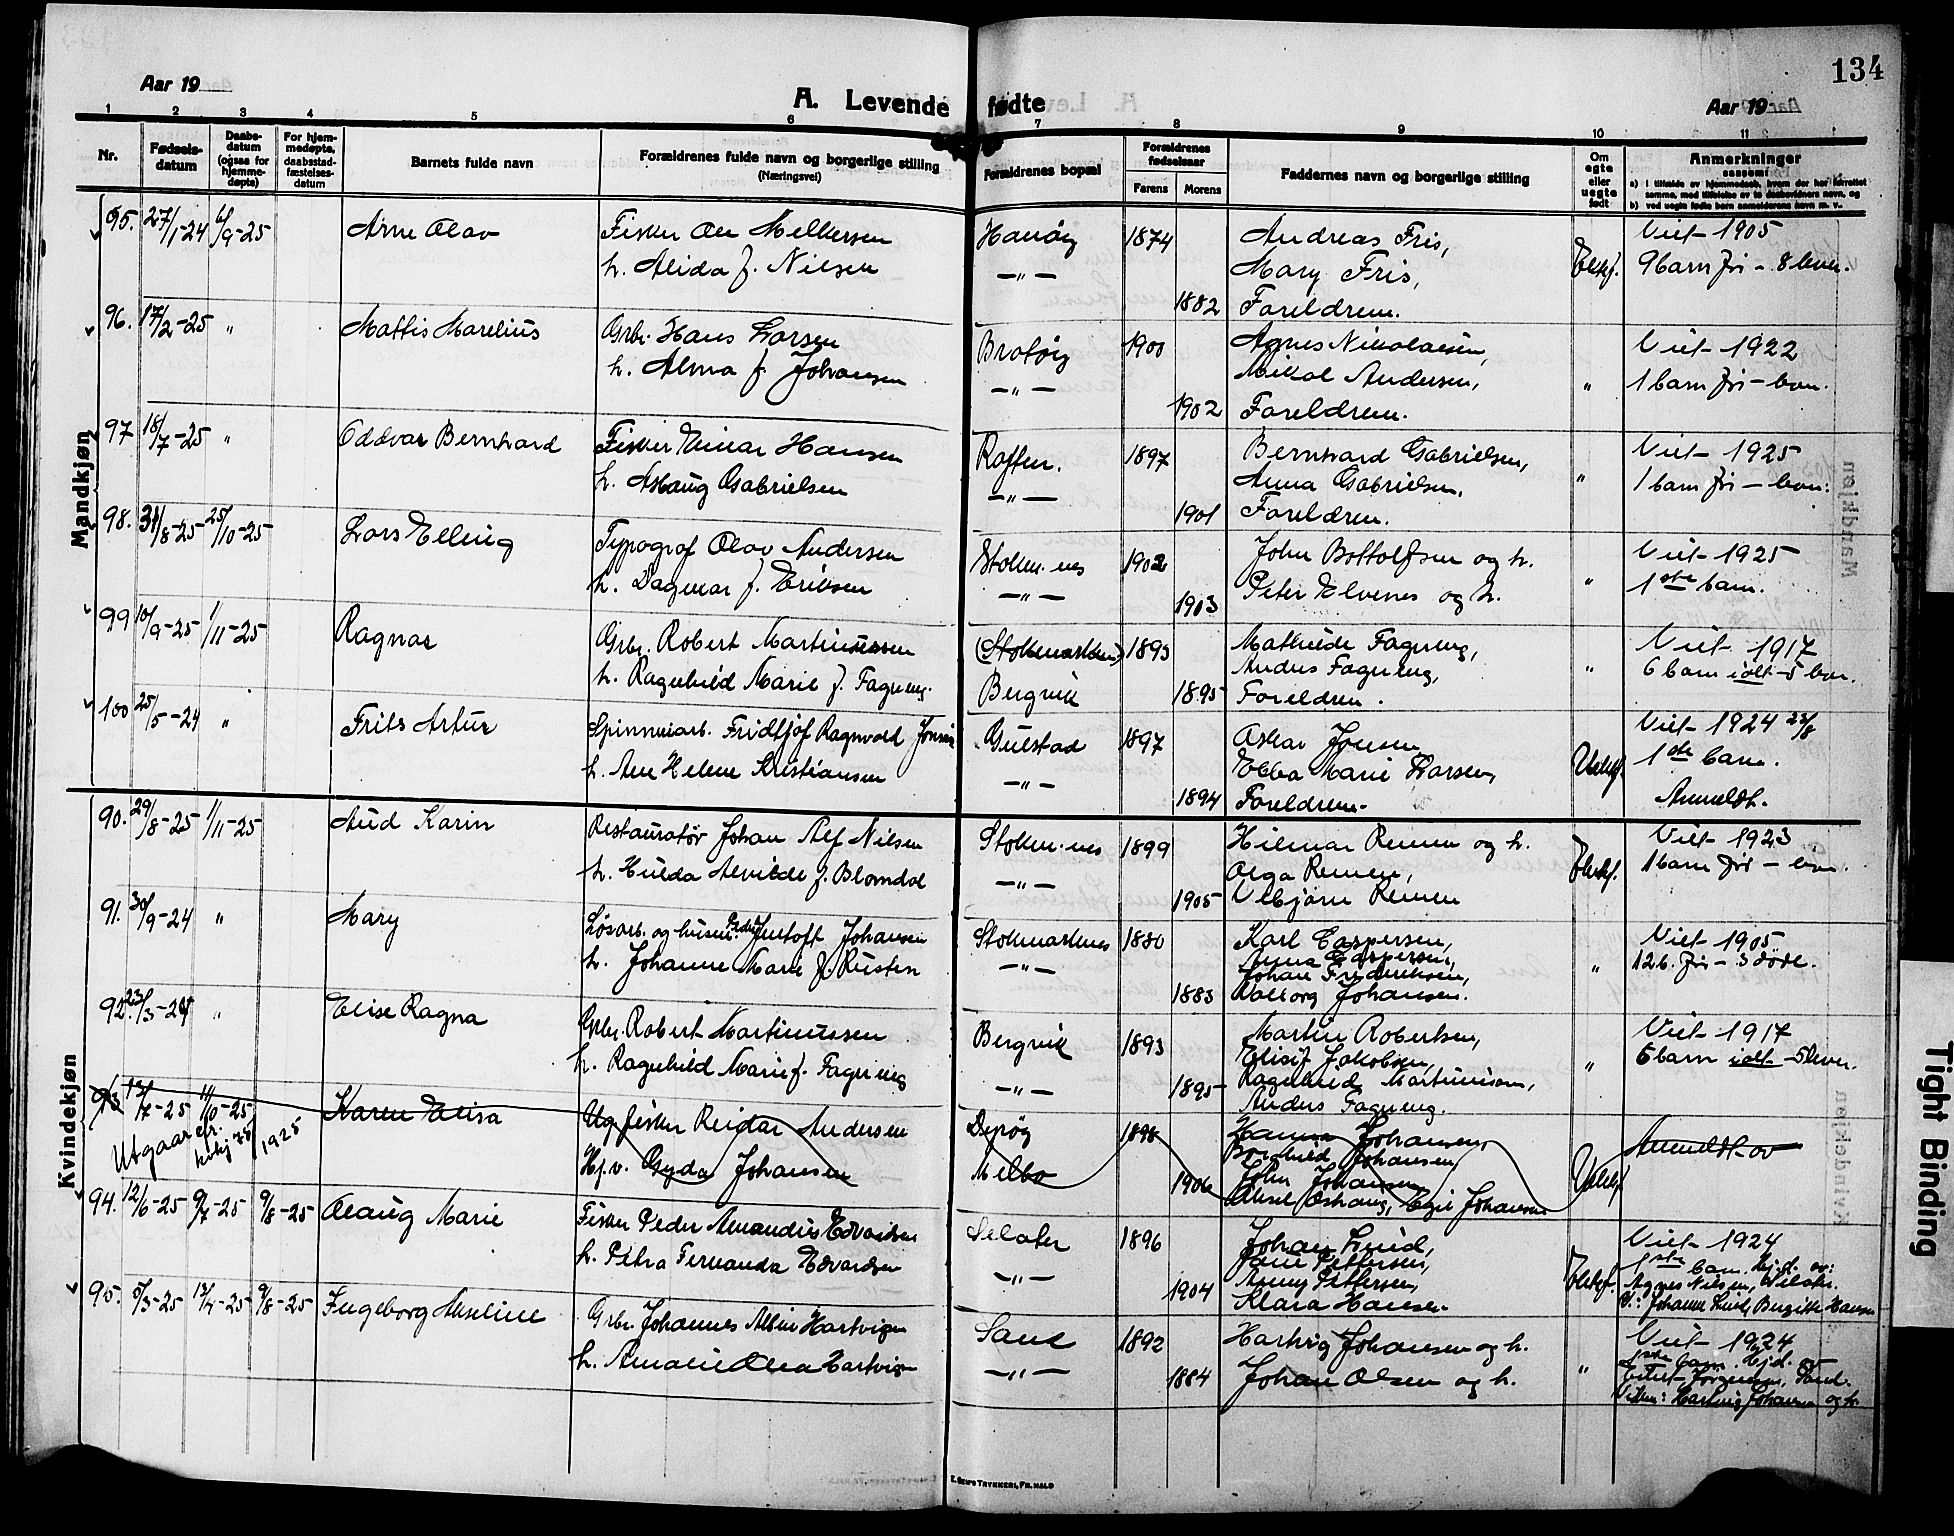 134
Aar 19
A. Levende fødte
Aar 19
1 2 3 4 5 6 7 8 9 10 11
Nr.
Fødsels-datum
Daabs-datum (ogsaa for hjemme-døpte)
For hjem-medøpte, daabsstad-fæstelses-datum
Barnets fulde navn
Forældrenes fulde navn og borgerlige stilling
(Næringsvei)
Forældrenes bopæl
Forældrenes fødselsaar
Farens Morens
Faddernes navn og borgerlige stilling
Om egte eller uegte født
Anmerkninger
saasom:
Mandkjøn
95. 27/1-24 6/9-25 Arne Olav Fisker Ole Melkersen Hanøy 1874 Andreas Fris, Ektef. Viet 1905
h. Alida f. Nilsen —"— Mary Fris, 9 barn før - 8 lever.
1882 Foreldrene.
96. 17/2-25 " Mattis Marelius Grbr. Hans Larsen Brotøy 1900 Agnes Nikolaisen, Viet 1922
h. Alma f. Johansen —"— Mikal Andersen, " 1 barn før - lever.
1902 Foreldrene.
97 18/7-25 " Oddvar Bernhard Fisker Einar Hansen Raften. 1897 Bernhard Gabrielsen, Viet 1925
h. Aslaug Gabrielsen —"— Anna Gabrielsen, " 1 barn før - lever.
1901 Foreldrene.
98. 31/8-25 25/10-25 Lars Elling Typograf Olav Andersen Stokm.nes 1902 John Bottolfsen og h. Viet 1925
h. Dagmar f. Eriksen —"— 1903 Peter Elvenes og h. " 1ste barn.
99 10/9-25 1/11-25 Ragnar Grbr. Robert Martinussen (Stokmarknes) 1893 Mathilde Fagereng, Viet 1917
h. Ragnhild Marie f. Fagereng. Bergvik 1895 Anders Fagereng, " 6 barn ialt - 5 lever.
Foreldrene.
100 25/5-24 " Frits Artur Spinneriarb. Fridtjof Ragnvald Jensen Gulstad 1897 Oskar Jensen Viet 1924 23/8
h. Ane Helene Kristiansen —"— Ebba Marie Larsen, Uektef. 1ste barn.
1894 Foreldrene. Anmeldt.
Kvindekjøn
90. 29/8-25 1/11-25 Aud Karin Restauratør Johan Alf Nilsen Stokm.nes 1899 Hilmar Reinen og h. Viet 1923
h. Hulda Alvilde f. Blomdal —"— Olga Reinen, Ektef. 1 barn før - lever.
1905 Vebjørn Reinen
91. 30/9-24 " Mary Løsarb. og husm. Peder Justoft Johansen Stokmarknes 1880 Karl Caspersen, Viet 1905
h. Johanne Marie f. Rusten —"— Anna Caspersen, " 12 b. før - 3 døde.
Johan Fredriksen,
1883 Valborg Johansen.
92. 23/3-24 " Elise Ragna Grbr. Robert Martinussen Bergvik 1893 Martin Robertsen, Viet 1917
h. Ragnhild Marie f. Fagereng —"— Elisif Jakobsen, " 6 barn ialt - 5 lever.
1895 Ragnhild Martinussen,
Anders Fagereng.
93 11/10-25 Karen Elisa Ug. fisker Reidar Andersen Dypøy 1898 Hanna Johansen, Anmeldt av
Utgaar cfr. kvkj 75/1925 Hj.v. Gyda Johansen Melbo Borghild Johansen Uektef.
1906 John Johansen
Johansen
94. 12/6-25 9/7-25 9/8-25 Olaug Marie Fisker Peder Amandus Edvardsen Selater 1896 Johan Lund, Ektef. Viet 1924
h. Petra Fernanda Edvardsen —"— Pettersen, 1ste barn. Hj.d. av:
1904 Anny Pettersen, Agnes Nilsen,
Klara Hansen. V: Johanne Lund, Bergitte Hansen
95. 5/3-25 13/4-25 9/8-25 Ingeborg Akseline Grbr. Johannes Albin Hartvigsen Sand 1892 Hartvig Johansen og h. Viet 1924
h. Amalie Olea Hartvigsen —"— 1884 Johan Olsen og h. " 1ste barn. Hj.d. av
Jørgensen, Sand.
Vitner: Hartvig Johansen og h.
E. Sem's Trykkeri, Fr.hald
Tight Binding